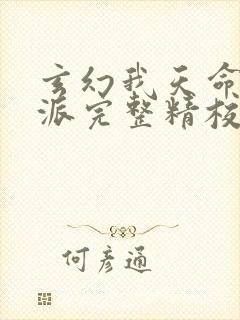 玄幻我天命
派完整精校
何彦通